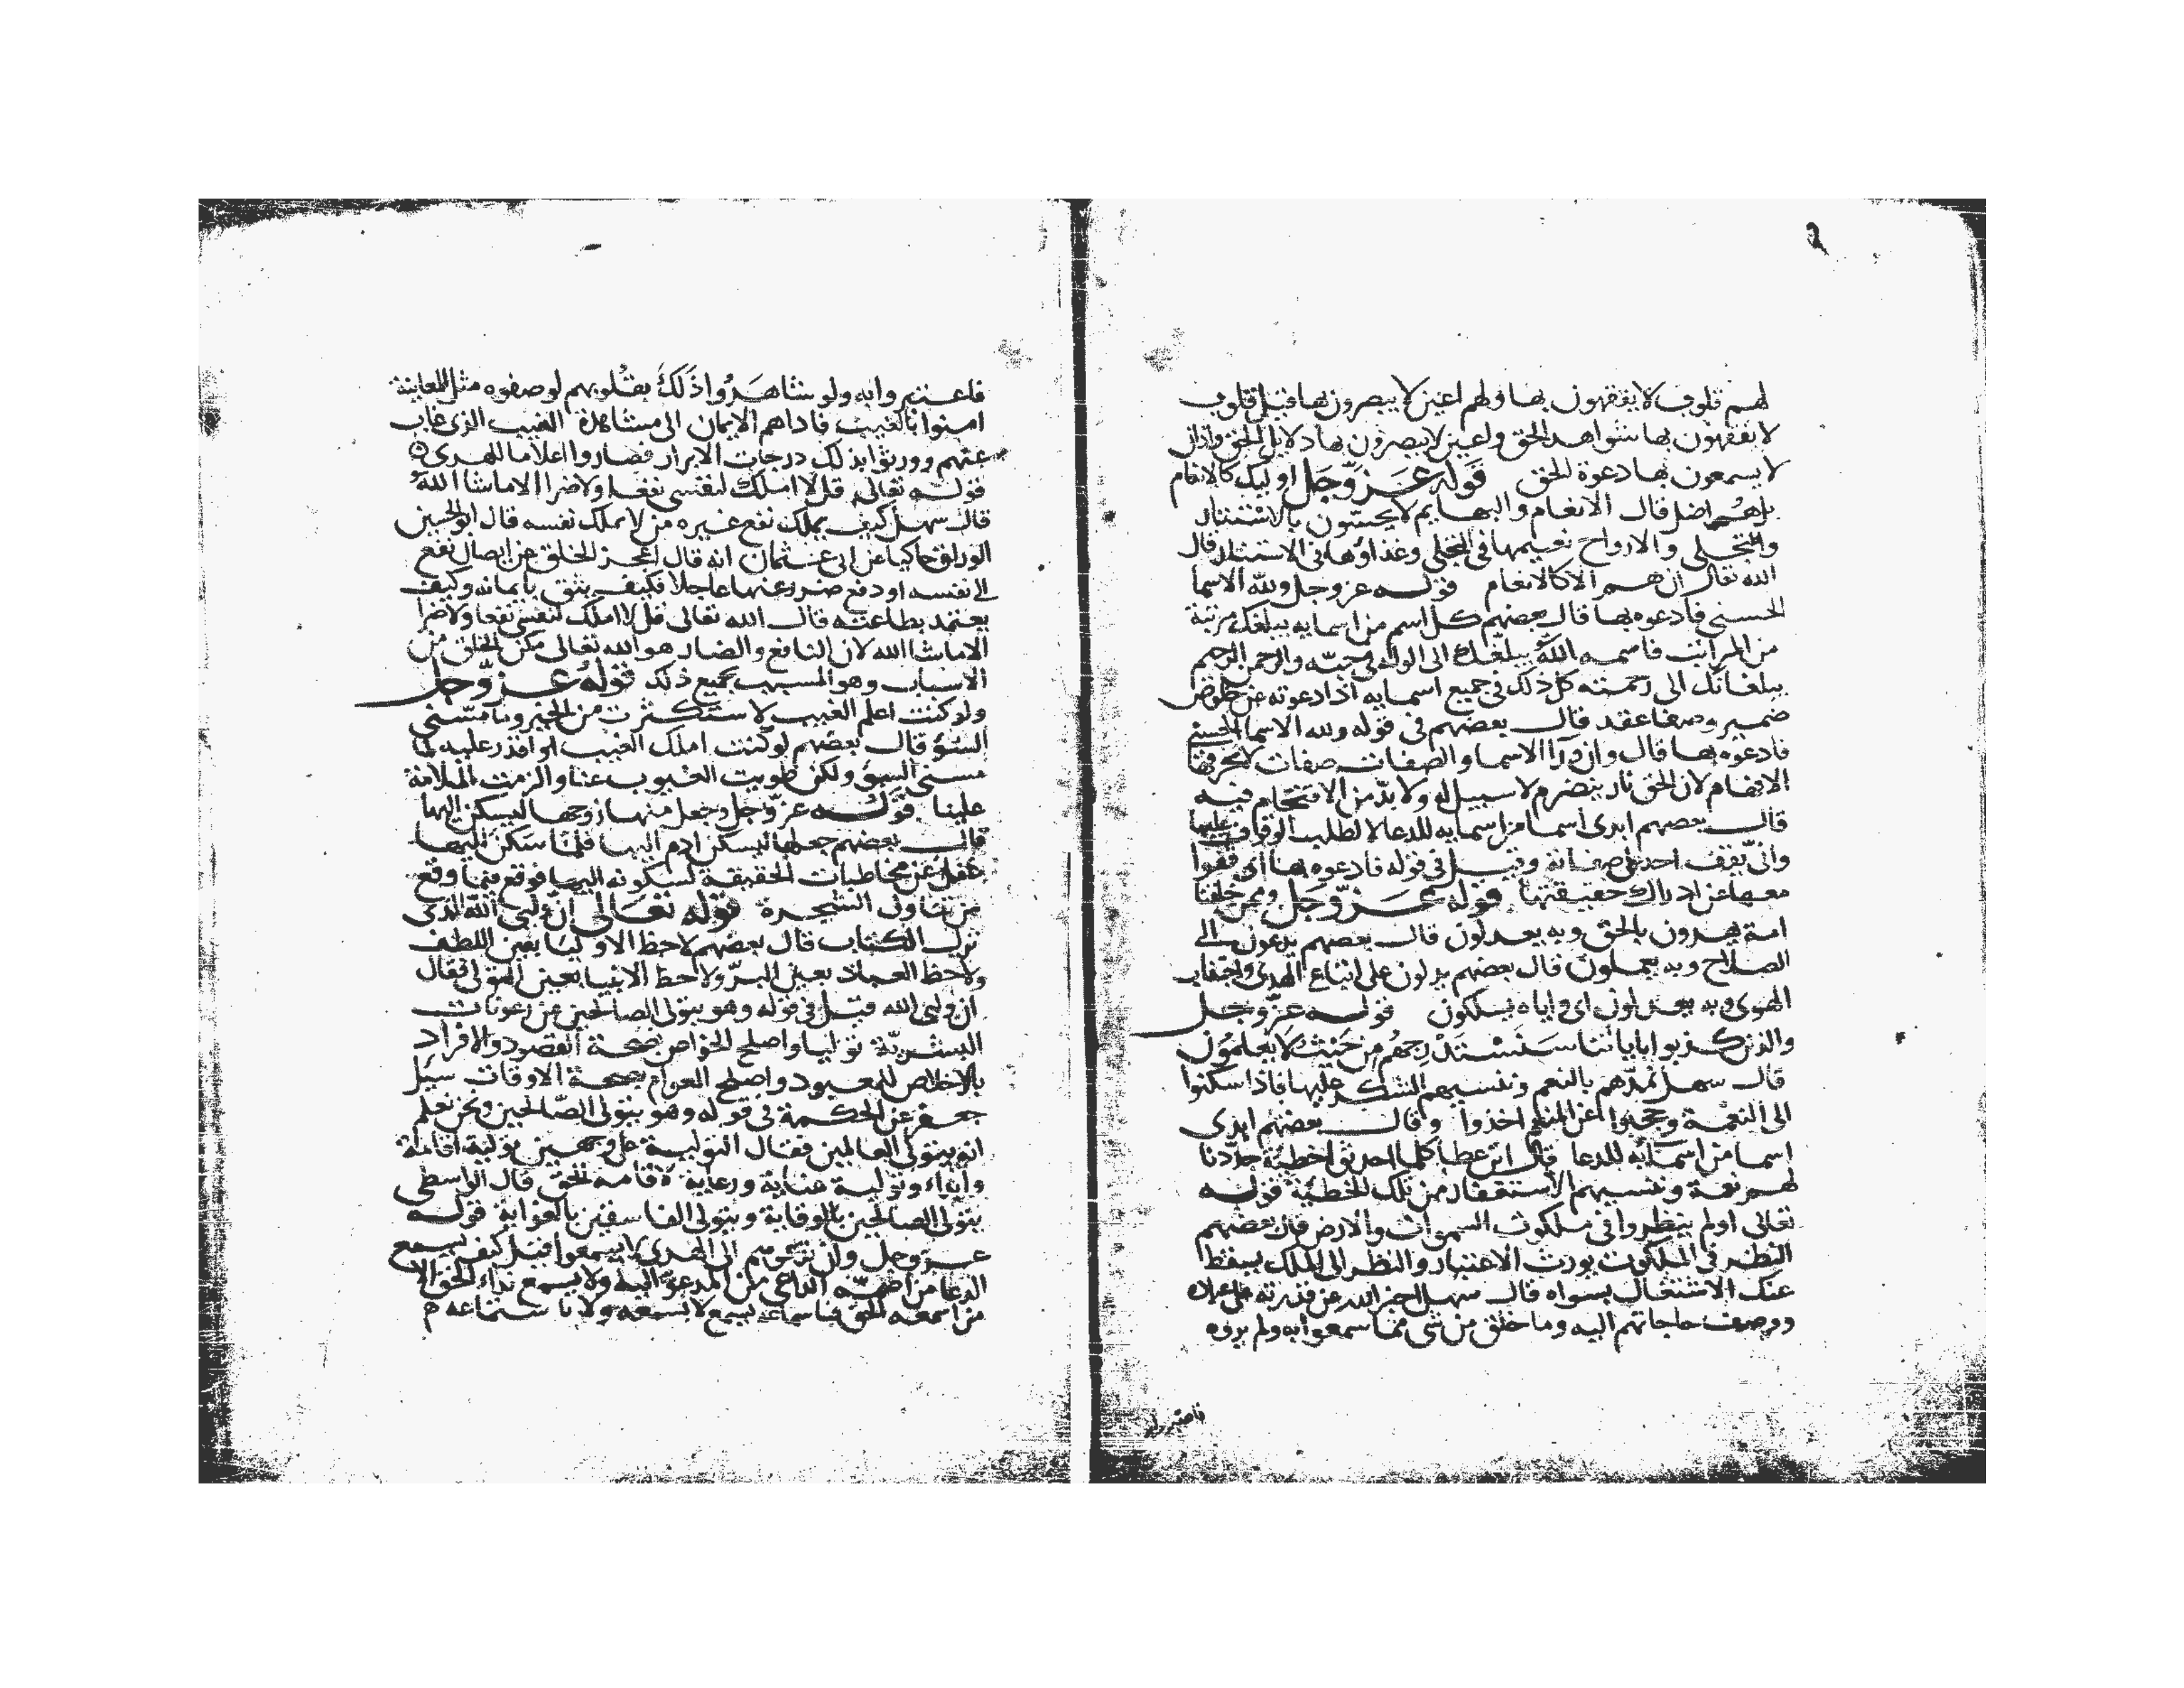 لهم قلوب لا يفقهون بها ولهم اعين لا يبصرون بها قيل قلوب
لا يفقهون بها شواهد الحق واعين لا يبصرون بها دلايل الحق واذان
لا يسمعون بها دعوة الحق قوله عز وجل اوليك كالانعام
بل هم اضل قال الانعام والبهايم لا يحسون بالاستتار
والتجلى والارواح نعيمها فى التجلى وغذاؤها فى الاستتار قال
الله تعالى ان هم الا كالانعام قوله عز وجل ولله الاسما
الحسنى فادعوه بها قال بعضهم كل اسم من اسمايه يبلغك مرتبة
من المراتب فاسمه الله يبلغك الى الوله فى محبته والرحمن الرحيم
يبلغانك الى رحمته كل ذلك فى جميع اسمايه اذا دعوته عن خلوص
ضمير وصفا عقد قال بعضهم فى قوله ولله الاسما الحسنى
فادعوه بها قال وان ورآ الاسما والصفات صفات لا تخرقها
الافهام لان الحق نار يتضرم لا سبيل له ولا بد من الاقتحام فيه
قال بعضهم ابدى اسما من اسمايه للدعا لا لطلب الوقوف عليها
وانى يقف احد على صفاته وقيل فى قوله فادعوه بها اى قفوا
معها عن ادراك حقيقتها قوله عز وجل وممن خلقنا
امة يهدون بالحق وبه يعدلون قال بعضهم يدعون الى
الصلاح وبه يعملون قال بعضهم يدلون على اتباع الهدى واجتناب
الهوى وبه يعدلون اى واياه يسلكون قوله عز وجل
والذين كذبوا باياتنا سنستدرجهم من حيث لا يعلمون
قال سهل نمدهم بالنعم وننسيهم الشكر عليها فاذا سكنوا
الى النعمة وحجبوا عن المنعم اخذوا وقال بعضهم ابدى
اسما من اسمآئه للدعا قال ابن عطا كلما احدثوا خطية جددنا
لهم نعمة وننسيهم الاستغفار من تلك الخطية قوله
تعالى اولم ينظروا فى ملكوت السموات والارض قال بعضهم
النظر فى الملكوت يورث الاعتبار والنظر الى الملك يسقط
عنك الاشتغال بسواه قال سهل اخبر الله عن قدرته على
ووصف حاجاتهم اليه وما خلق من شى مما سمعوا به ولم يروه
فاعتبروا به ولو شاهدوا ذلك بقلوبهم لوصفوه مثل المعاينة
امنوا بالغيب فاداهم الايمان الى مشاهدة الغيب الذى غاب
عنهم وورثوا بذلك درجات الابرار فصاروا اعلاما للهدى
قوله تعالى قل لا املك لنفسى نفعا ولا ضرا الا ماشا الله
قال سهل كيف يملك نفع غيره من لا يملك نفسه قال ابو الحسين
الوراق حاكيا عن ابى عثمان انه قال اعجز الخلق عن ايصال نفع
الى نفسه او دفع ضر عنها عاجلا فكيف يثق بايمانه وكيف
يعتمد بطاعته قال الله تعالى قل لا املك لنفسى نفعا ولا ضرا
الا ماشا الله لان النافع والضار هو الله تعالى مكن الخلق من
الاسباب وهو المسبب بجميع ذلك قوله عز وجل
ولو كنت اعلم الغيب لاستكثرت من الخير وما مسنى
السؤ قال بعضهم لو كنت املك الغيب او اقدر عليه لما
مسنى السؤ ولكن طويت الغيوب عنا والزمت الملامة
علينا قوله عز وجل وجعل منها زوجها ليسكن اليها
قال بعضهم جعلها ليسكن ادم اليها فلما سكن اليها
غفل عن مخاطبات الحقيقة لسكونه اليها فوقع فيما وقع
من تناول الشجرة قوله تعالى ان وليى الله الذى
نزل الكتاب قال بعضهم لاحظ الاوليا بعين اللطف
ولاحظ العباد بعين البر ولاحظ الانبيا بعين التولى فقال
ان وليى الله وقيل فى قوله وهو يتولى الصالحين عن رعونات
البشرية توليا واصلح الخواص بصحة القصود والافراد
بالاخلاص للمعبود واصلح العوام بصحة الاوقات سيل
جعفر عن الحكمة فى قوله وهو يتولى الصالحين ونحن نعلم
انه يتولى العالمين فقال التولية على وجهين تولية اقامة
وابداء وتولية عناية ورعاية لاقامة الحق قال الواسطى
يتولى الصالحين بالوقاية ويتولى الفاسقين بالغواية قوله
عز وجل وان تدعوهم الى الهدى لا يسمعوا قيل كيف يسمع
الدعا من اصمه الداعى عن المدعو اليه ولا يسمع نداء الحق الا
من اسمعه الحق فباسماعه يسمع لا بسمعه ولا باستماعه